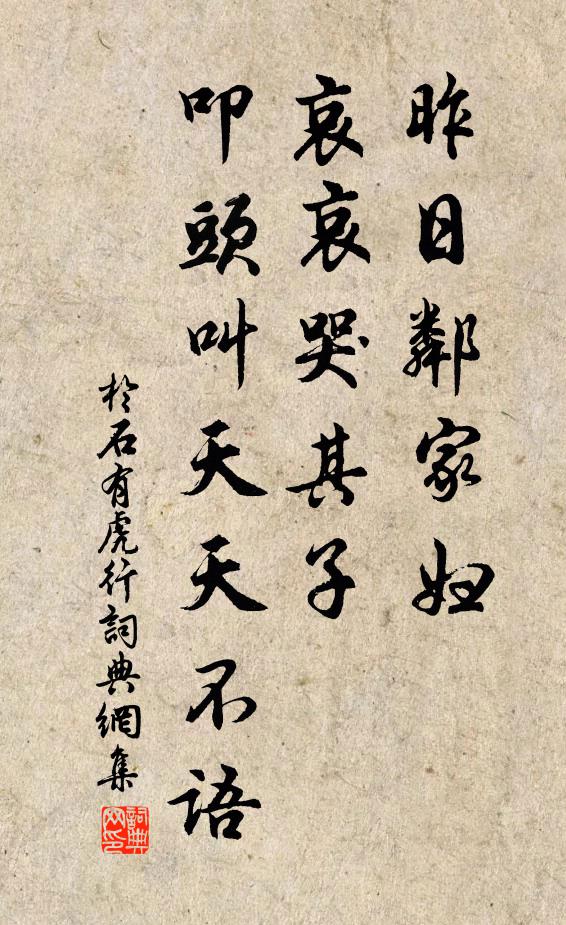 昨日鄰家婦
哀哀哭其子
叩頭叫天天不語
於石有虎行詞典網集
詞典网印